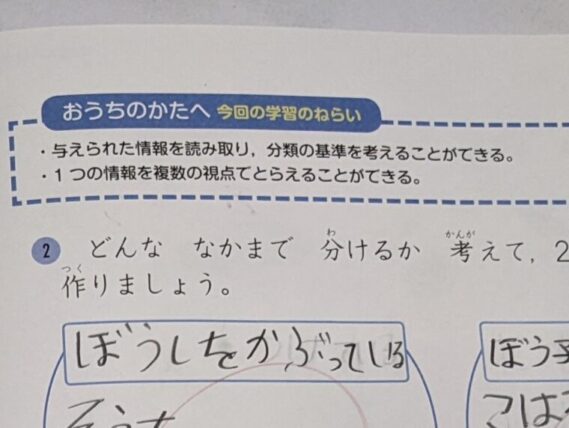 おうちのかたへ 今回の学習のねらい
・与えられた情報を読み取り，分類の基準を考えることができる。
・1つの情報を複数の視点でとらえることができる。
2 どんな なかまで 分けるか 考えて，2
作りましょう。
ぼうしをかぶっている
ぼう